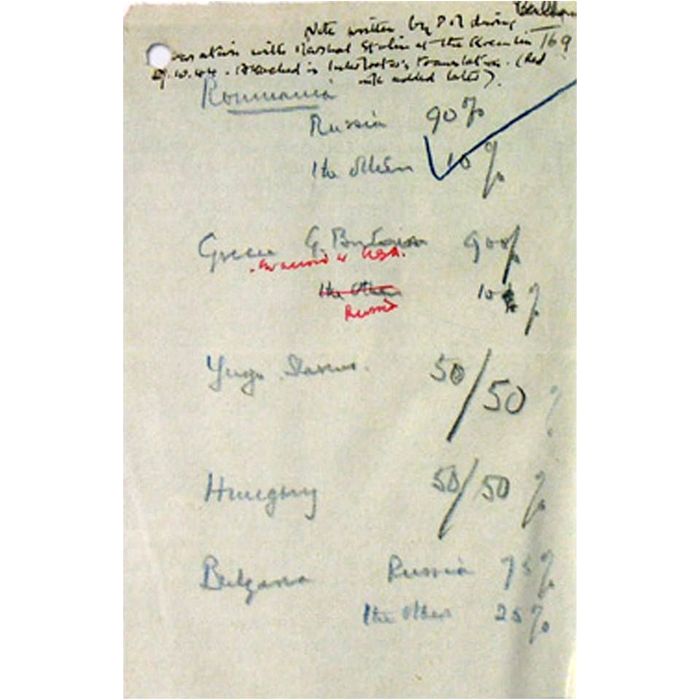 Note written by P.M during
conversation with Marshal Stalin at the Kremlin 169
9.10.44. Attached is Interpreter's translation. (Red
ink added later).
Roumania
Russia 90%
the others 10%
Greece G. Britain 90%
in accord w USA.
the others 10%
Russia
Yugo.slavia. 50/50 %
Hungary 50/50 %
Bulgaria Russia 75%
the others 25%